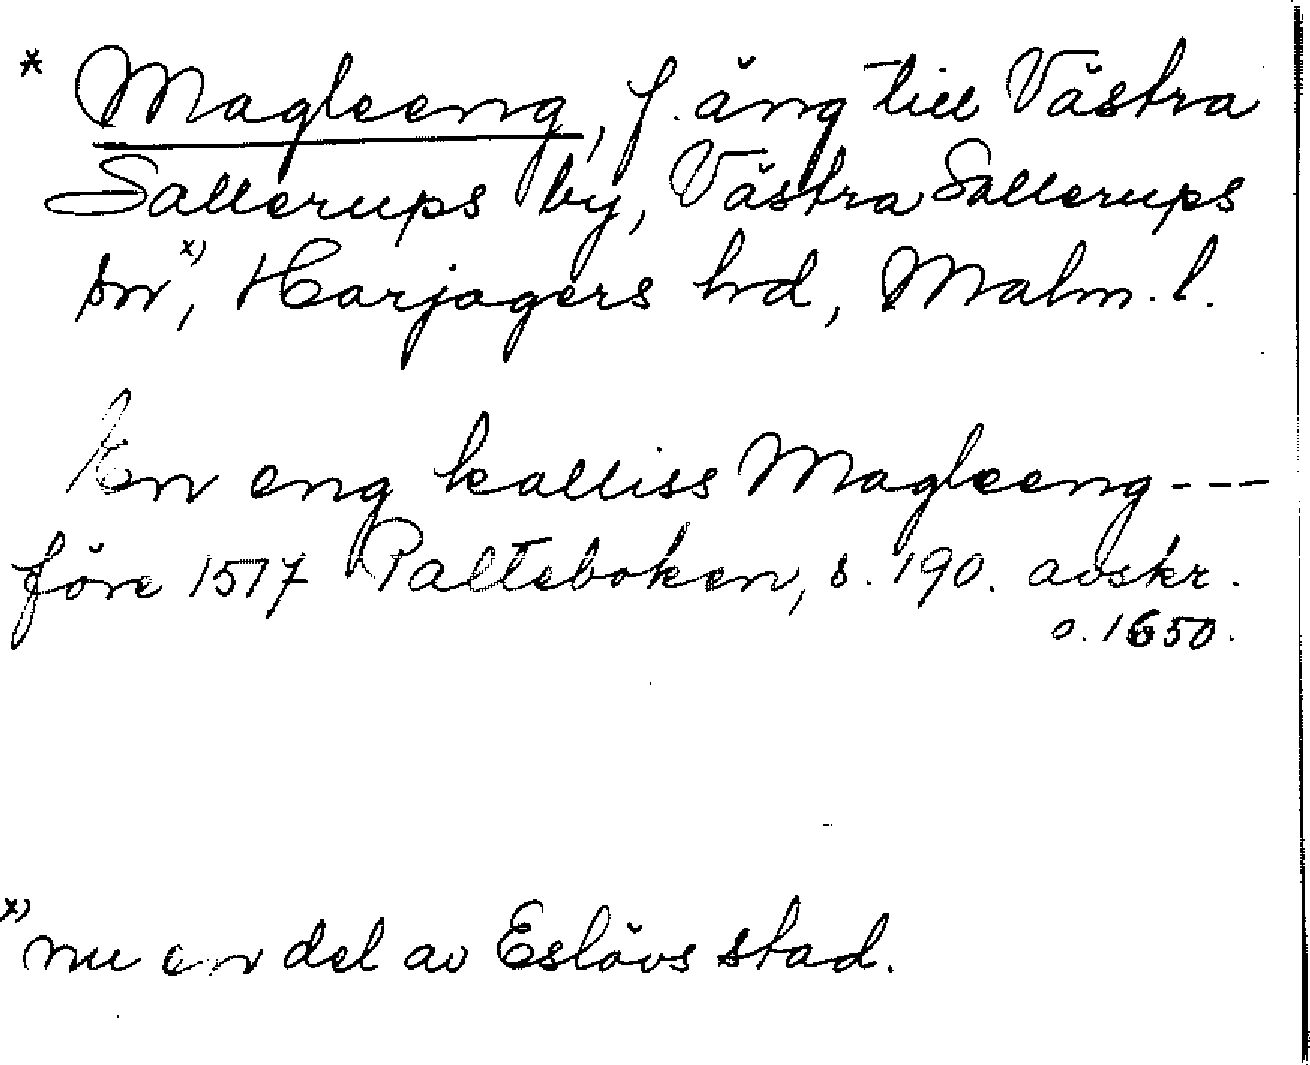 * Magleeng, f. äng till Västra
Sallerups by, Västra Sallerups
sn x), Harjagers hd, Malm. l.
En eng kalliss Magleeng ---
före 1517 Palteboken, s. 190. avskr.
o. 1650.
x) nu en del av Eslövs stad.